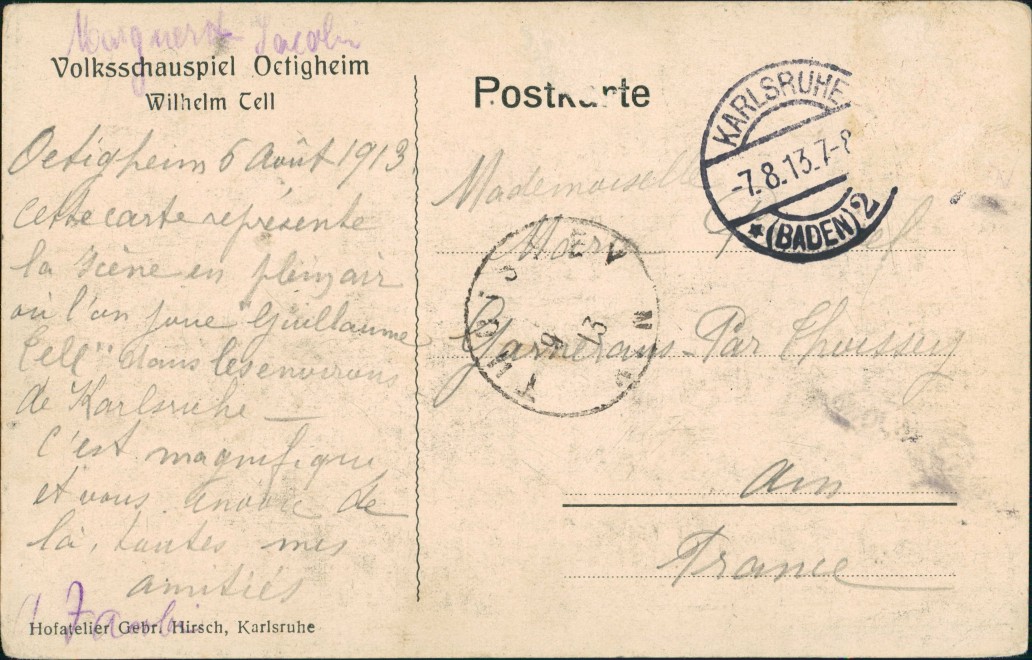 Volksschauspiel Oetigheim
Wilhelm Tell
Oetigheim 6 Août 1913
Cette carte représente
la scène en plein air
où l'on joue "Guillaume
Tell" dans les environs
de Karlsruhe —
C'est magnifique
et vous envoie de
là, toutes mes
amitiés
Hofatelier Gebr. Hirsch, Karlsruhe
Postkarte
KARLSRUHE
-7.8.13.7-8
*(BADEN)2
Mademoiselle
Garnerans Par Thoissey
Ain
France
THOISSEY
9
13